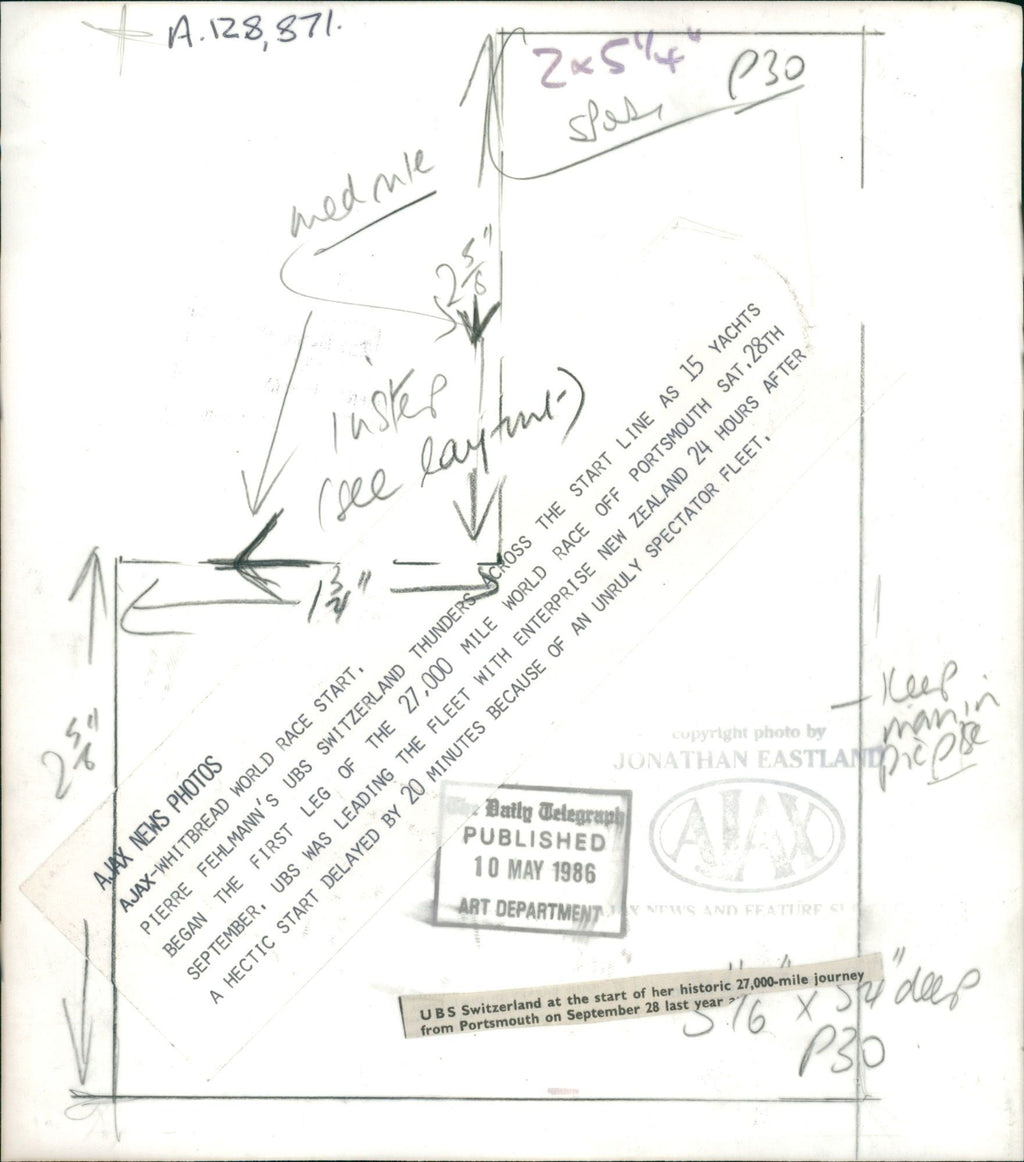 A.128,871.
2 x 5 1/4"
P30
med rule
2 5/8"
(see layout)
1 3/4"
2 5/8"
AJAX NEWS PHOTOS
AJAX-WHITBREAD WORLD RACE START.
PIERRE FEHLMANN'S UBS SWITZERLAND THUNDERS ACROSS THE START LINE AS 15 YACHTS
BEGAN THE FIRST LEG OF THE 27,000 MILE WORLD RACE OFF PORTSMOUTH SAT.28TH
SEPTEMBER. UBS WAS LEADING THE FLEET WITH ENTERPRISE NEW ZEALAND 24 HOURS AFTER
A HECTIC START DELAYED BY 20 MINUTES BECAUSE OF AN UNRULY SPECTATOR FLEET.
Keep
man in
pic pse
copyright photo by
JONATHAN EASTLAND
AJAX
AJAX NEWS AND FEATURE
The Daily Telegraph
PUBLISHED
10 MAY 1986
ART DEPARTMENT
UBS Switzerland at the start of her historic 27,000-mile journey
from Portsmouth on September 28 last year
x 5 1/4" deep
P30